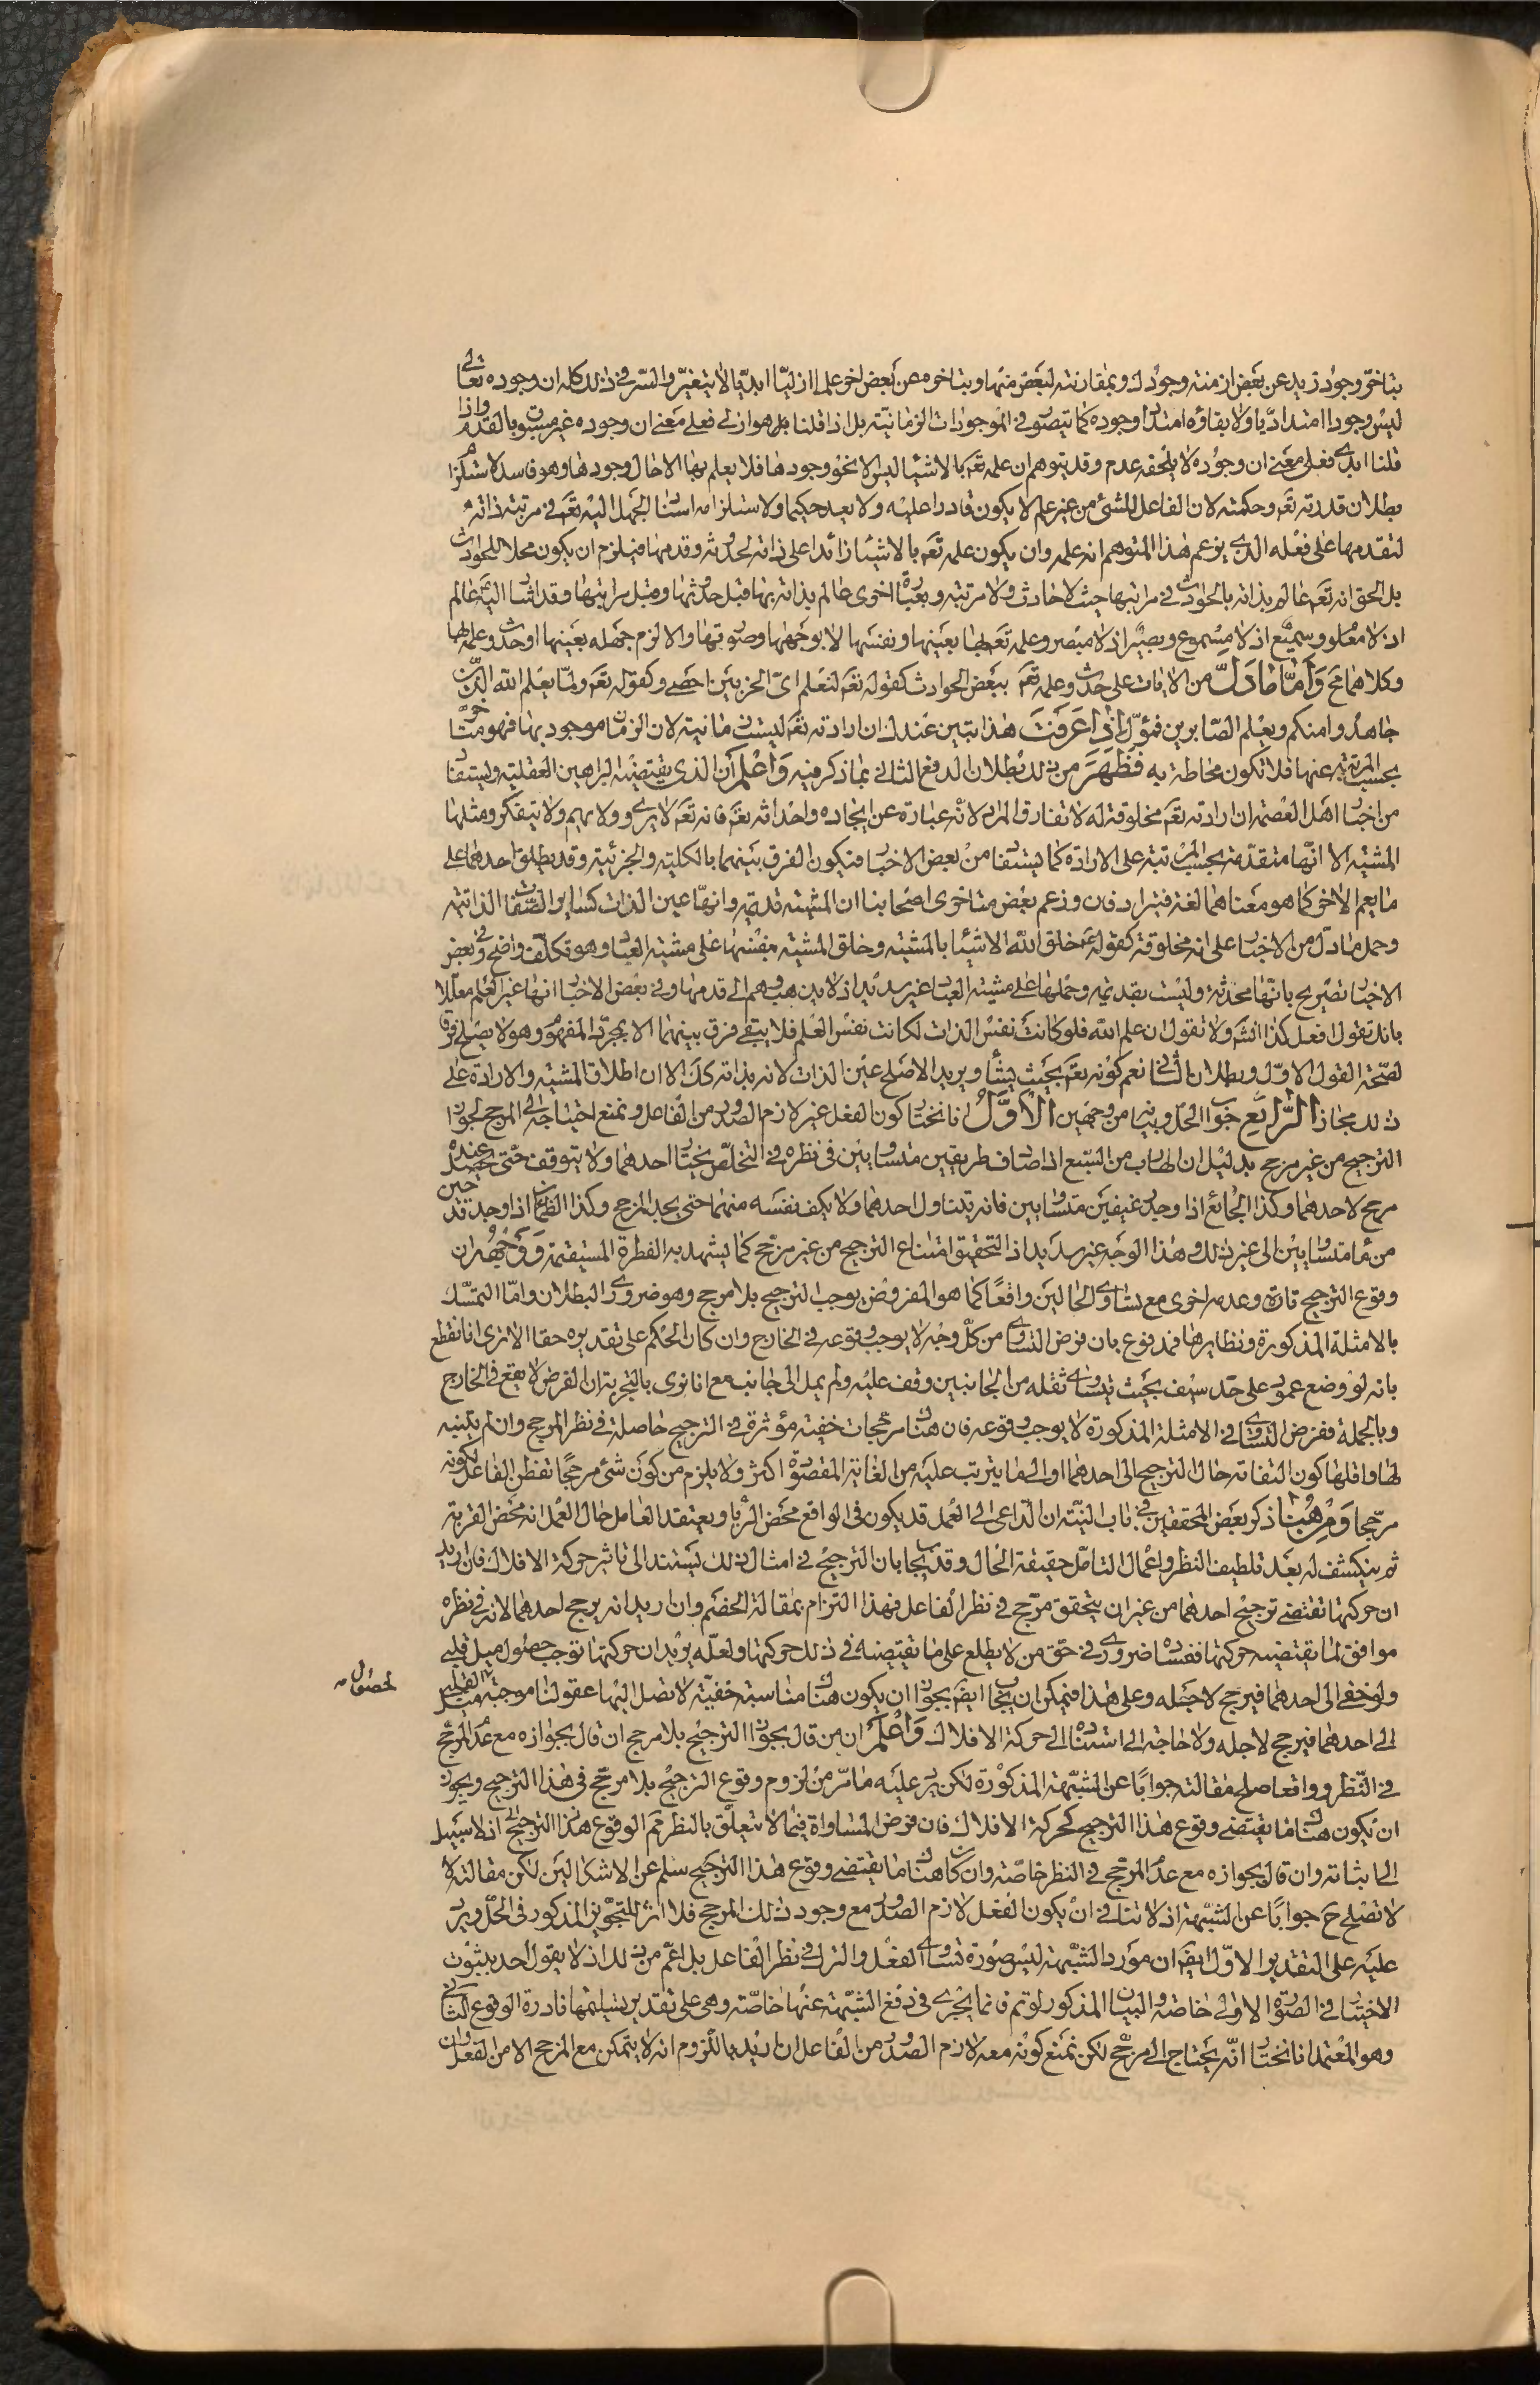 بتاخّر وجود زيد عن بعض ازمنة وجودك وبمقارنته لبعض منها وبتاخره عن بعض اخر علما ازليّا ابديّا لا يتغيّر والسّر في ذلك كله ان وجوده تعالى
ليس وجودا امتداديّا ولا بقاؤه امتداد وجوده كما يتصور في الموجودات الزمانيّة بل اذا قلنا بل هو ازلي فعلى معنى ان وجوده غير مسبوق بالعدم واذا
قلنا ابدي فعلى معنى ان وجوده لا يلحقه عدم وقد يتوهم ان علمه تعم بالاشياء ليس الا نحو وجودها فلا يعلم بها الا حال وجودها وهو فاسد لاستلزامه
بطلان قدرته تعم وحكمته لان الفاعل للشئ من غير علم لا يكون قادرا عليه ولا يعد حكيما ولاستلزامه استناد الجهل اليه تعم في مرتبة ذاته
لتقدمها على فعله الذي يزعم هذا المتوهم انه علمه وان يكون علمه تعم بالاشياء زائدا على ذاته لحدوثه وقدمها فيلزم ان يكون محلا للحوادث
بل الحق انه تعم عالم بذاته بالحوادث في مراتبها حيث لا حادث ولا مرتبة وبعبارة اخرى عالم بذاته بها قبل حدوثها وقبل مراتبها وقد اشار اليه عالم
اذ لا معلوم وسميع اذ لا مسموع وبصير اذ لا مبصر وعلمه تعم بها بعينها ونفسها لا بوجهها وصورتها والا لزم جهله بعينها او حدوث علمه بها
وكلاهما مح وَأمّا ما دَلّ من الايات على حدوث علمه تعم ببعض الحوادث كقوله تعم لنعلم اىّ الحزبين احصى وكقوله تعم ولمّا يعلم الله الذين
جاهدوا منكم ويعلم الصّابرين فمؤوّل اذا عَرَفتَ هذا تبين عندك ان ارادته تعم ليست زمانية لان الزمان موجود بها فهو متاخر
بحسب المرتبة عنها فلا تكون محاطة به فَظَهَرَ من ذلك بطلان الدفع الثاني بما ذكر فيه وَاعْلَم ان الذي يقتضيه البراهين العقلية ويستفاد
من اخبار اهل العصمة ان ارادته تعم مخلوقة له لا تفارق المراد لانّه عبارة عن ايجاده واحداثه تعم فانه تعم لا يروي ولا يهم ولا يتفكر ومثلها
المشية الا انّها متقدّمة بحسب المرتبة على الارادة كما يستفاد من بعض الاخبار فيكون الفرق بينهما بالكلية والجزئية وقد يطلق احدهما على
ما يعم الاخر كما هو معناهما لغة فيترادفان وزعم بعض متاخري اصحابنا ان المشية قديمة وانها عين الذات كساير الصفات الذاتية
وحمل ما دلّ من الاخبار على انه مخلوقة كقوله ع خلق الله الاشياء بالمشية وخلق المشية بنفسها على مشية العباد وهو تكلّف واضح وفي بعض
الاخبار تصريح بانّها محدثة وليست بقديمة وحملها على مشية العباد غير سديد اذ لا يذهب وهم الى قدمها وفي بعض الاخبار انها غير العلم معلّلا
بانك تقول افعل كذا انشَ ولا تقول ان علم الله فلو كانت نفس الذات لكانت نفس العلم فلا يبقى فرق بينهما الا بمجرّد المفهوم وهو لا يصلح فرقا
لصّحة القول الاوّل وبطلان الثاني نعم كونه تعم بحيث يشأ ويريد الاصلح عين الذات لانه بذاته كك الا ان اطلاق المشية والارادة على
ذلك مجاز الرّابعِ جواب الحلّ وبيانه من وجهين الأوَّلُ انا نختار كون الفعل غير لازم الصدور من الفاعل ونمنع احتياجه الى المرجح لجواز
الترجيح من غير مرجح بدليل ان الهارب من السّبع اذا صادف طريقين متساويين في نظره في التخلّص يختار احدهما ولا يتوقف حتى يحصل عنده
مرجح لاحدهما وكذا الجائع اذا وجد رغيفين متساويين فانه يتناول احدهما ولا يكف نفسه منهما حتى يجد المرجح وكذا الظمان اذا وجد قدحين
من ماء متساويين الى غير ذلك وهذا الوجه غير سديد اذ التحقيق امتناع الترجيح من غير مرجّح كما يشهد به الفطرة المستقيمة وَوَجهُه ان
وقوع الترجيح تارة وعدمه اخرى مع تساوي الحالين واقعًا كما هو المفروض يوجب الترجيح بلا مرجح وهو ضروري البطلان وامّا التمسّك
بالامثلة المذكورة ونظايرها فمدفوع بان فرض التساوي من كلّ وجه لا يوجب وقوعه في الخارج وان كان الحكم على تقديره حقا الا ترى انا نقطع
بانه لو وضع عمود على حدّ سيف بحيث يتساوى ثقله من الجانبين وقف عليه ولم يمل الى جانب مع انا نرى بالتجربة ان الفرض لا يقع في الخارج
وبالجملة ففرض التساوي في الامثلة المذكورة لا يوجب وقوعه فان هناك مرجّحات خفية مؤثرة في الترجيح حاصلة في نظر المرجح وان لم يتنبه
لها واقلها كون التفاته حال الترجيح الى احدهما او الى ما يترتب عليه من الغاية المقصودة اكثر ولا يلزم من كون شئ مرجحًا تفطن الفاعل لكونه
مرجّحا وَمِن هُنا ذكر بعض المحققين في باب النيّة ان الدّاعي الى العمل قد يكون في الواقع محض الرّيا ويعتقد العامل حال العمل انه محض القربة
ثم ينكشف له بعد تلطيف النظر واعمال التامّل حقيقة الحال وقد يجاب بان الترجيح في امثال ذلك يستند الى تاثير حركة الافلاك فان اريد
ان حركتها تقتضي ترجيح احدهما من غير ان يتحقق مرجّح في نظر الفاعل فهذا التزام بمقالة الخصم وان اريد انه يرجح احدهما لانه في نظره
موافق لما يقتضيه حركتها ففساده ضروري في حق من لا يطلع على ما تقتضيه في ذلك حركتها ولعلّه يريد ان حركتها توجب حصول ميل قلبي
ولو خفي الى احدهما فيرجح لاجله وعلى هذا فيمكن ان يجاب ايضَ بجواز ان يكون هناك مناسبة خفيّة لا تصل اليها عقولنا موجبة لميل القلب
لحصول
الى احدهما فيرجح لاجله ولا حاجة الى استناده الى حركة الافلاك وَاعْلَم ان من قال بجواز الترجيح بلا مرجح ان قال بجوازه مع عدم المرجّح
في النّظر وواقعا صلح مقالته جوابًا عن الشبهة المذكورة لكن يرد عليه ما مرّ من لزوم وقوع الترجيح بلا مرجّح في هذا الترجيح ويجوز
ان يكون هناك ما يقتضي وقوع هذا الترجيح كحركة الافلاك فان فرض المساواة فيما لا يتعلّق بالنظر مم الوقوع هذا الترجيح اذ لا سبيل
الى اثباته وان قال بجوازه مع عدم المرجّح في النظر خاصّة وان كان هناك ما يقتضي وقوع هذا الترجيح سلم عن الاشكالين لكن مقالته
لا تصلح ح جوابًا عن الشبهة اذ لا تنافي ان يكون الفعل لازم الصدور مع وجود ذلك المرجح فلا اثر للتجويز المذكور في الحلّ ويرد
عليه على التقدير الاوّل ايضَ ان مورد الشبهة ليس صورة تساوي الفعل والترك في نظر الفاعل بل اعّم من ذلك اذ لا يقول احد بثبوت
الاختيار في الصورة الاولى خاصة والبيان المذكور لو تم فانما يجري في دفع الشبهة عنها خاصّة وهي على تقدير تسليمها نادرة الوقوع الثاني
وهو المعتمد انا نختار انّه يحتاج الى مرجّح لكن نمنع كونه معه لازم الصدور من الفاعل ان اريد باللزوم انه لا يتمكن مع المرجح الا من الفعل وان